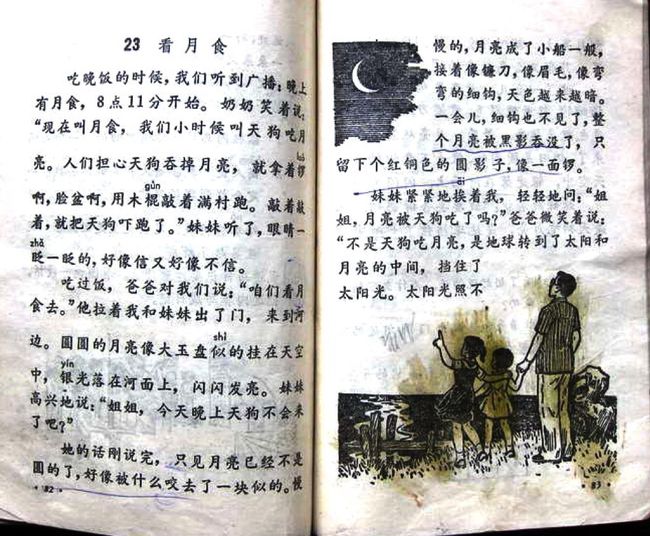 23 看月食
吃晚饭的时候，我们听到广播：晚上
有月食，8点11分开始。奶奶笑着说：
“现在叫月食，我们小时候叫天狗吃月
亮。人们担心天狗吞掉月亮，就拿着锣
luó
啊，脸盆啊，用木棍敲着满村跑。敲着敲
gùn
着，就把天狗吓跑了。”妹妹听了，眼睛一
zhǎ
眨一眨的，好像信又好像不信。
吃过饭，爸爸对我们说：“咱们看月
食去。”他拉着我和妹妹出了门，来到河
shì
边。圆圆的月亮像大玉盘似的挂在天空
yín
中，银光落在河面上，闪闪发亮。妹妹
高兴地说：“姐姐，今天晚上天狗不会来
了吧？”
她的话刚说完，只见月亮已经不是
圆的了，好像被什么咬去了一块似的。慢
·82·
慢的，月亮成了小船一般，
接着像镰刀，像眉毛，像弯
弯的细钩，天色越来越暗。
一会儿，细钩也不见了，整
个月亮被黑影吞没了，只
留下个红铜色的圆影子，像一面锣。
āi
妹妹紧紧地挨着我，轻轻地问：“姐
姐，月亮被天狗吃了吗？”爸爸微笑着说：
“不是天狗吃月亮，是地球转到了太阳和
月亮的中间，挡住了
太阳光。太阳光照不
·83·